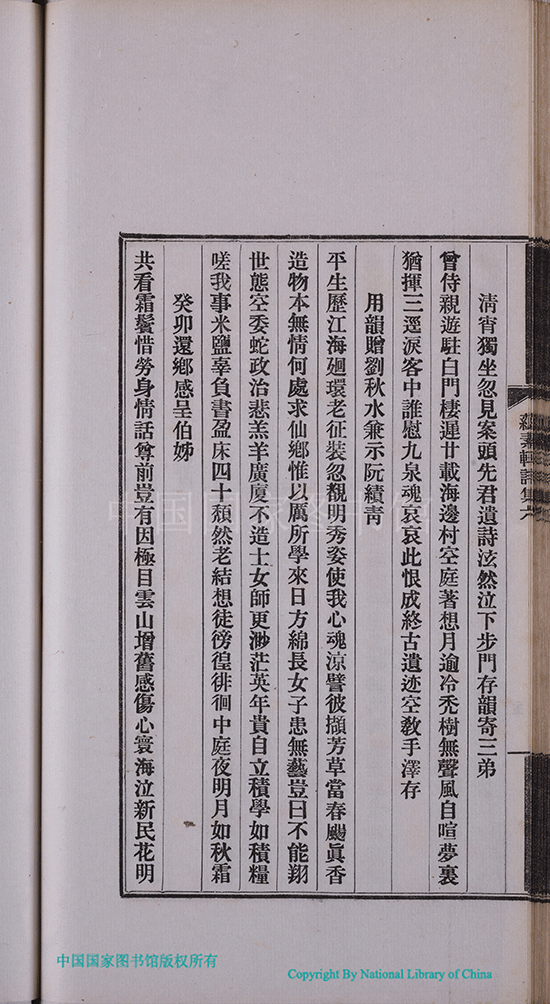 清宵獨坐忽見案頭先君遺詩泫然泣下步門存韻寄三弟
曾侍親遊駐白門棲遲廿載海邊村空庭著想月逾冷禿樹無聲風自喧夢裏
猶揮三逕淚客中誰慰九泉魂哀哀此恨成終古遺迹空教手澤存
用韻贈劉秋水兼示阮績靑
平生歷江海廻環老征裝忽覯明秀姿使我心魂涼譬彼擷芳草當春颺眞香
造物本無情何處求仙鄕惟以厲所學來日方綿長女子患無藝豈曰不能翔
世態空委蛇政治悲羔羊廣廈不造士女師更渺茫英年貴自立積學如積糧
嗟我事米鹽辜負書盈床四十頹然老結想徒徬徨徘徊中庭夜明月如秋霜
癸卯還鄕感呈伯姊
共看霜鬢惜勞身情話尊前豈有因極目雲山增舊感傷心寰海泣新民花明
素軒詩集六
中国国家图书馆
中国国家图书馆版权所有
Copyright By National Library of China